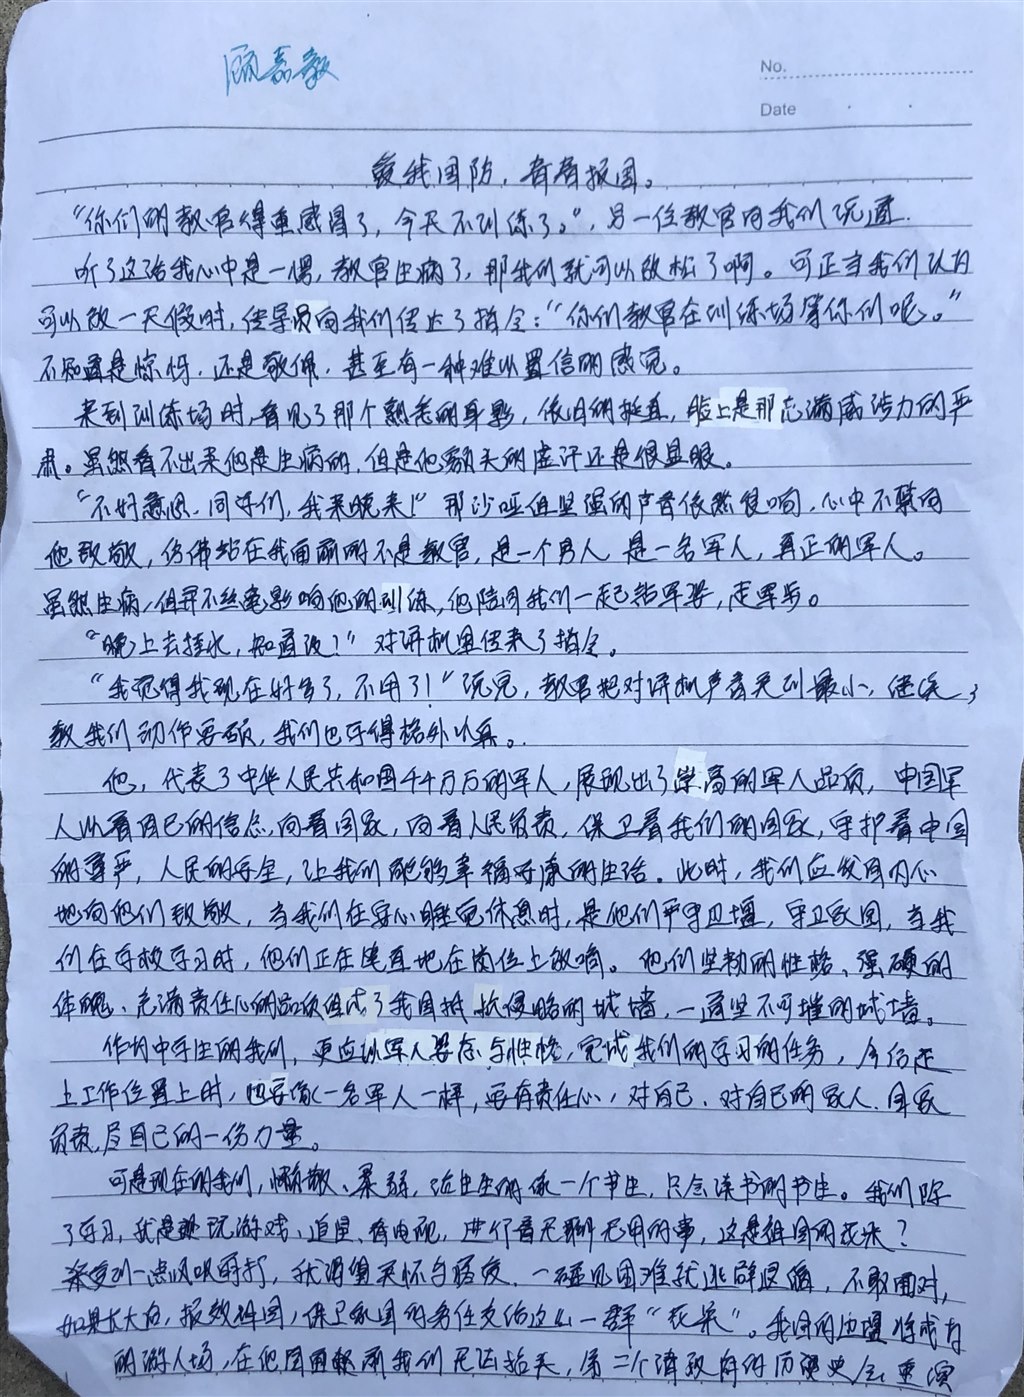 No.
Date
爱我国防，青春报国。
“你们的教官得重感冒了，今天不训练了。”，另一位教官向我们说道.
听了这话我心中是一愣，教官生病了，那我们就可以放松了啊。可正当我们认为
可以放一天假时，传导员向我们传达了指令：“你们教官在训练场等你们呢。”
不知道是惊讶，还是敬佩，甚至有一种难以置信的感觉。
来到训练场时，看见了那个熟悉的身影，依旧的挺直，脸上是那充满威活力的严
肃。虽然看不出来他是生病的，但是他额头的虚汗还是很显眼。
“不好意思，同学们，我来晚来！”那沙哑但坚强的声音依然很响，心中不禁向
他致敬，仿佛站在我面前的不是教官，是一个男人，是一名军人，真正的军人。
虽然生病，但并不丝毫影响他的训练，他陪同我们一起站军姿，走军步。
“晚上去挂水，知道没！”对讲机里传来了指令。
“我觉得我现在好多了，不用了！”说完，教官把对讲机声音关到最小，继续
教我们动作要领，我们也学得格外认真。
他，代表了中华人民共和国千千万万的军人，展现出了崇高的军人品质，中国军
人以着自己的信念，向着国家，向着人民负责，保卫着我们的国家，守护着中国
的尊严，人民的安全，让我们能够幸福安康的生活。此时，我们应发自内心
地向他们致敬，当我们在安心睡觉休息时，是他们严守卫堰，守卫家国，当我
们在学校学习时，他们正在笔直地在岗位上放哨。他们坚韧的性格、强硬的
体魄、充满责任心的品质组成了我国抵抗侵略的城墙，一道坚不可摧的城墙。
作为中学生的我们，更应以军人姿态与性格，完成我们的学习的任务，今后走
上工作位置上时，也要像一名军人一样，要有责任心，对自己、对自己的家人、国家
负责，尽自己的一份力量。
可是现在的我们，懒散、柔弱，活生生的像一个书生，只会读书的书生。我们除
了学习，就是玩游戏、追星、看电视，进行着无聊无用的事，这是祖国的花朵？
受到一点风吹雨打，一碰见困难就逃避退缩，不敢面对，
如果长大后，报效祖国，保卫家国的务任交给这么一群“花朵”。我国的边疆将成为
的游人场，在他国面前我们无法抬头，第二个清政府的历史会重演